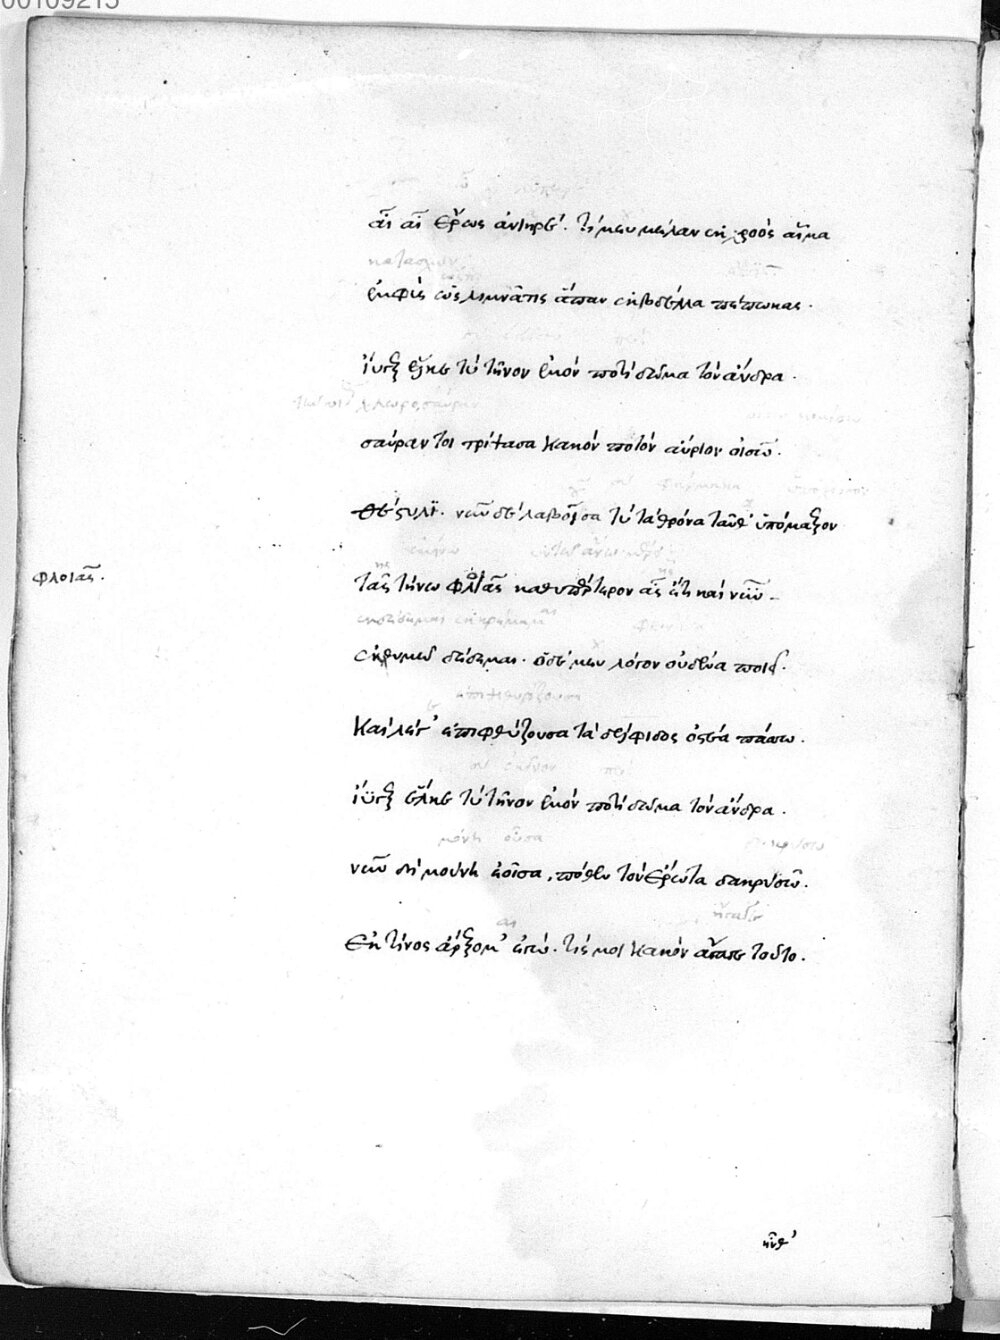 00109215
αἶ αἶ Ἔρως ἀνιηρέ. τί μευ μέλαν ἐκ χροὸς αἷμα
κατασχὼν
ἐμφὺς ὡς λιμνᾶτις ἅπαν ἐκ βδέλλα πέπωκας.
ἴυγξ ἕλκε τὺ τῆνον ἐμὸν ποτὶ δῶμα τὸν ἄνδρα.
σαύραν τοι τρίψασα κακὸν ποτὸν αὔριον οἰσῶ.
φάρμακα
Θέστυλι. νῦν δὲ λαβοῖσα τὺ τὰ θρόνα ταῦθ' ὑπόμαξον
ἐκείνου
φλοιᾶς.
τᾶς τήνω φλιᾶς καθυπέρτερον ἇς ἔτι καὶ νῦν
ἐκ θυμῶ δέδεμαι. ὁ δέ μευ λόγον οὐδένα ποιεῖ.
ἐπιψιθυρίζουσα
καὶ λέγ' ἐπιφθύζουσα τὰ δέλφιδος ὀστέα πάσσω.
ἴϋγξ ἕλκε τὺ τῆνον ἐμὸν ποτὶ δῶμα τὸν ἄνδρα.
μόνη οὖσα
νῦν δὴ μούνη ἐοῖσα, πόθεν τὸν ἔρωτα δακρυσῶ.
Ἐκ τίνος ἄρξομ' ἐγώ. τίς μοι κακὸν ἄγαγε τοῦτο.
ἦνθ'